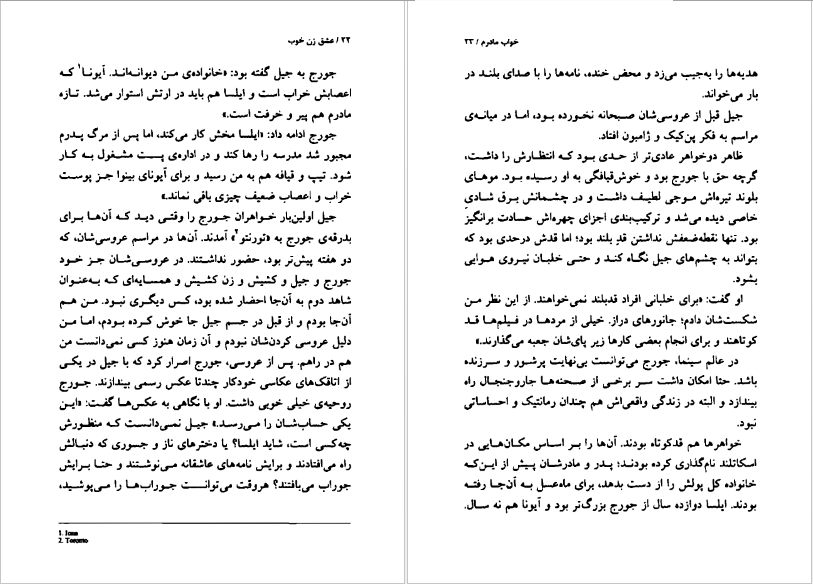 ۲۲ / عشق زن خوب
جورج به جیل گفته بود: «خانواده‌ی من دیوانه‌اند. آیونا۱ که
اعصابش خراب است و ایلسا هم باید در ارتش استوار می‌شد. تازه
مادرم هم پیر و خرفت است.»
جورج ادامه داد: «ایلسا مخش کار می‌کند، اما پس از مرگ پدرم
مجبور شد مدرسه را رها کند و در اداره‌ی پست مشغول به کار
شود. تیپ و قیافه هم به من رسید و برای آیونای بینوا جز پوست
خراب و اعصاب ضعیف چیزی باقی نماند.»
جیل اولین‌بار خواهران جورج را وقتی دید که آن‌ها برای
بدرقه‌ی جورج به «تورنتو۲» آمدند. آن‌ها در مراسم عروسی‌شان، که
دو هفته پیش‌تر بود، حضور نداشتند. در عروسی‌شان جز خود
جورج و جیل و کشیش و زن کشیش و همسایه‌ای که به‌عنوان
شاهد دوم به آن‌جا احضار شده بود، کس دیگری نبود. من هم
آن‌جا بودم و از قبل در جسم جیل جا خوش کرده بودم، اما من
دلیل عروسی کردن‌شان نبودم و آن زمان هنوز کسی نمی‌دانست من
هم در راهم. پس از عروسی، جورج اصرار کرد که با جیل در یکی
از اتاقک‌های عکاسی خودکار چندتا عکس رسمی بیندازند. جورج
روحیه‌ی خیلی خوبی داشت. او با نگاهی به عکس‌ها گفت: «این
یکی حساب‌شان را می‌رسد.» جیل نمی‌دانست که منظورش
چه‌کسی است، شاید ایلسا؟ یا دخترهای ناز و جسوری که دنبالش
راه می‌افتادند و برایش نامه‌های عاشقانه می‌نوشتند و حتا برایش
جوراب می‌بافتند؟ هروقت می‌توانست جوراب‌ها را می‌پوشید،
1. Iona
2. Toronto
خواب مادرم / ۲۳
هدیه‌ها را به‌جیب می‌زد و محض خنده، نامه‌ها را با صدای بلند در
بار می‌خواند.
جیل قبل از عروسی‌شان صبحانه نخورده بود، اما در میانه‌ی
مراسم به فکر پن‌کیک و ژامبون افتاد.
ظاهر دوخواهر عادی‌تر از حدی بود که انتظارش را داشت،
گرچه حق با جورج بود و خوش‌قیافگی به او رسیده بود. موهای
بلوند تیره‌اش موجی لطیف داشت و در چشمانش برق شادی
خاصی دیده می‌شد و ترکیب‌بندی اجزای چهره‌اش حسادت برانگیز
بود. تنها نقطه‌ضعفش نداشتن قدِ بلند بود؛ اما قدش درحدی بود که
بتواند به چشم‌های جیل نگاه کند و حتی خلبان نیروی هوایی
بشود.
او گفت: «برای خلبانی افراد قدبلند نمی‌خواهند. از این نظر من
شکست‌شان دادم؛ جانورهای دراز. خیلی از مردها در فیلم‌ها قد
کوتاهند و برای انجام بعضی کارها زیر پای‌شان جعبه می‌گذارند.»
در عالم سینما، جورج می‌توانست بی‌نهایت پرشور و سرزنده
باشد. حتا امکان داشت سر برخی از صحنه‌ها جاروجنجال راه
بیندازد و البته در زندگی واقعی‌اش هم چندان رمانتیک و احساساتی
نبود.
خواهرها هم قدکوتاه بودند. آن‌ها را بر اساس مکان‌هایی در
اسکاتلند نام‌گذاری کرده بودند؛ پدر و مادرشان پیش از این‌که
خانواده کل پولش را از دست بدهد، برای ماه‌عسل به آن‌جا رفته
بودند. ایلسا دوازده سال از جورج بزرگ‌تر بود و آیونا هم نه سال.